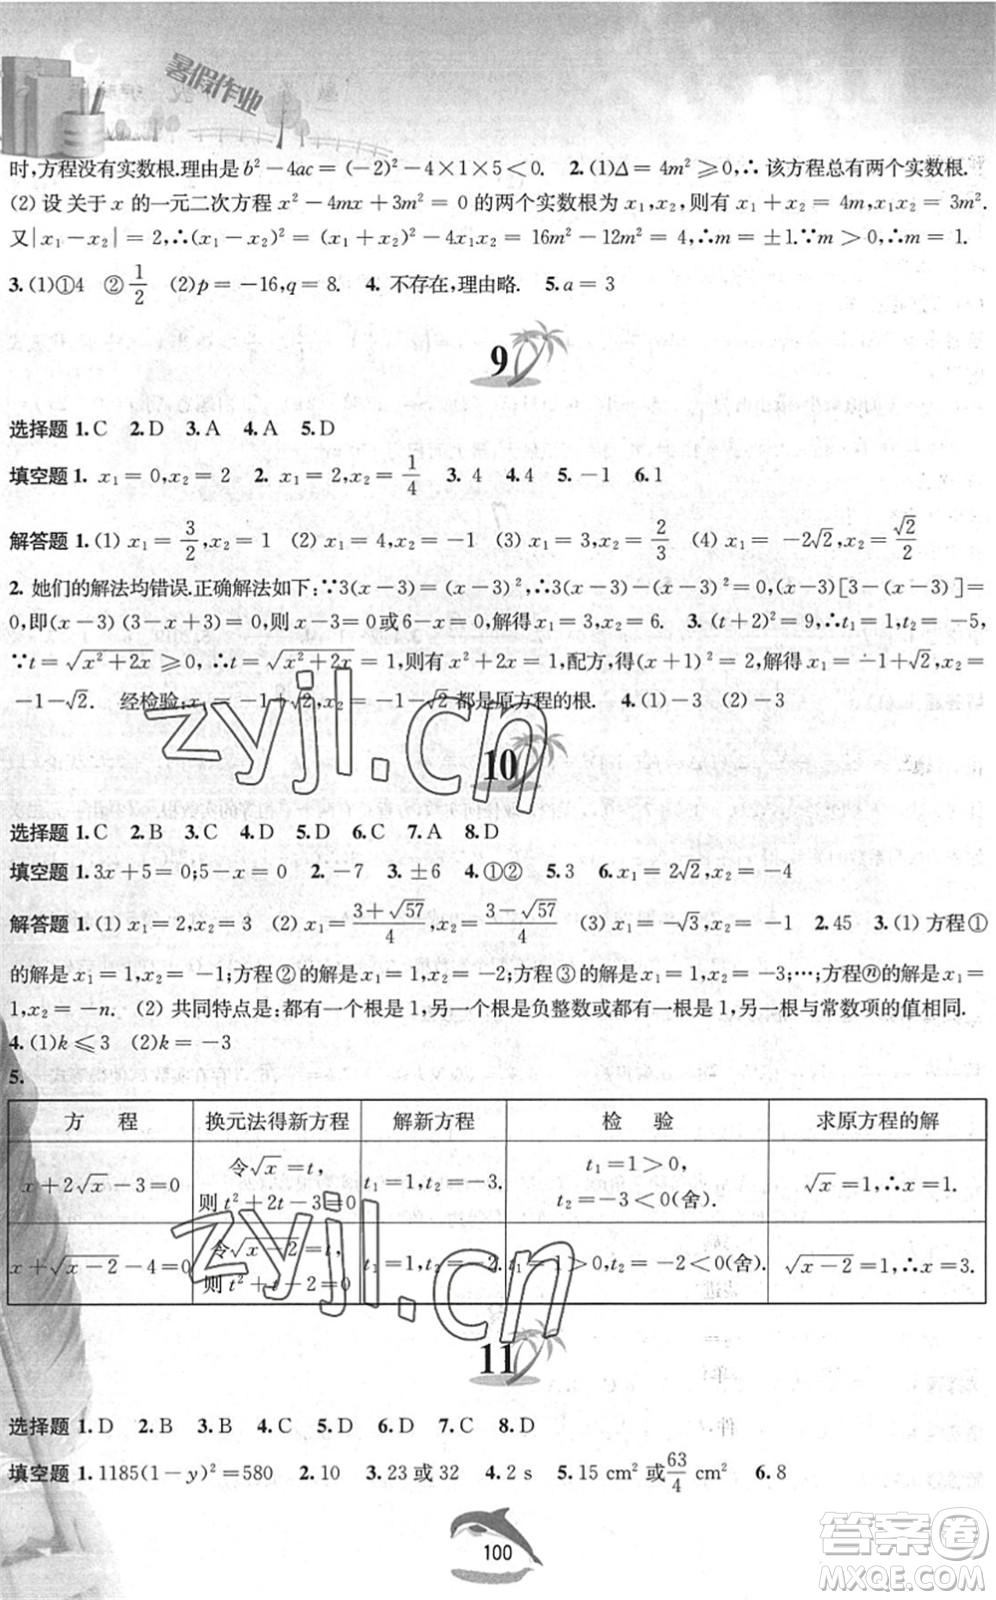 暑假作业
时,方程没有实数根.理由是b²-4ac=(-2)²-4×1×5<0. 2.(1)Δ=4m²⩾0,∴该方程总有两个实数根.
(2)设关于x的一元二次方程x²-4mx+3m²=0的两个实数根为x₁,x₂,则有x₁+x₂=4m,x₁x₂=3m².
又|x₁-x₂|=2,∴(x₁-x₂)²=(x₁+x₂)²-4x₁x₂=16m²-12m²=4,∴m=±1.∵m>0,∴m=1.
3.(1)①4 ②1/2 (2)p=-16,q=8. 4. 不存在,理由略. 5.a=3
9
选择题 1.C 2.D 3.A 4.A 5.D
填空题 1. x₁=0,x₂=2 2. x₁=2,x₂=1/4 3. 4 4.4 5.-1 6.1
解答题 1.(1) x₁=3/2,x₂=1 (2) x₁=4,x₂=-1 (3) x₁=3,x₂=2/3 (4) x₁=-2√2,x₂=√2/2
2. 她们的解法均错误.正确解法如下:∵3(x-3)=(x-3)²,∴3(x-3)-(x-3)²=0,(x-3)[3-(x-3)]=
0,即(x-3)(3-x+3)=0,则x-3=0或6-x=0,解得x₁=3,x₂=6. 3.(t+2)²=9,∴t₁=1,t₂=-5,
∵t=√(x²+2x)⩾0,∴t=√(x²+2x)=1,则有x²+2x=1,配方,得(x+1)²=2,解得x₁=-1+√2,x₂=
-1-√2. 经检验:x₁=-1+√2,x₂=-1-√2都是原方程的根. 4.(1)-3 (2)-3
zyjl.cn
10
选择题 1.C 2.B 3.C 4.D 5.D 6.C 7.A 8.D
填空题 1.3x+5=0;5-x=0 2.-7 3.±6 4.①② 5.3 6.x₁=2√2,x₂=-4
解答题 1.(1) x₁=2,x₂=3 (2) x₁=(3+√57)/4,x₂=(3-√57)/4 (3) x₁=-√3,x₂=-1 2.45 3.(1)方程①
的解是x₁=1,x₂=-1;方程②的解是x₁=1,x₂=-2;方程③的解是x₁=1,x₂=-3;…;方程ⓝ的解是x₁=
1,x₂=-n. (2) 共同特点是:都有一个根是1,另一个根是负整数或都有一个根是1,另一根与常数项的值相同.
4.(1)k⩽3 (2)k=-3
5.
方 程 换元法得新方程 解新方程 检 验 求原方程的解
x+2√x-3=0 令√x=t,则t²+2t-3=0 t₁=1,t₂=-3. t₁=1>0,t₂=-3<0(舍). √x=1,∴x=1.
x+√(x-2)-4=0 令√(x-2)=t,则t²+t-2=0 t₁=1,t₂=-2. t₁=1>0,t₂=-2<0(舍). √(x-2)=1,∴x=3.
zyjl.cn
11
选择题 1.D 2.B 3.B 4.C 5.D 6.D 7.C 8.D
填空题 1.1185(1-y)²=580 2.10 3.23或32 4.2 s 5.15 cm²或63/4 cm² 6.8
100
答案圈
MXQE.COM